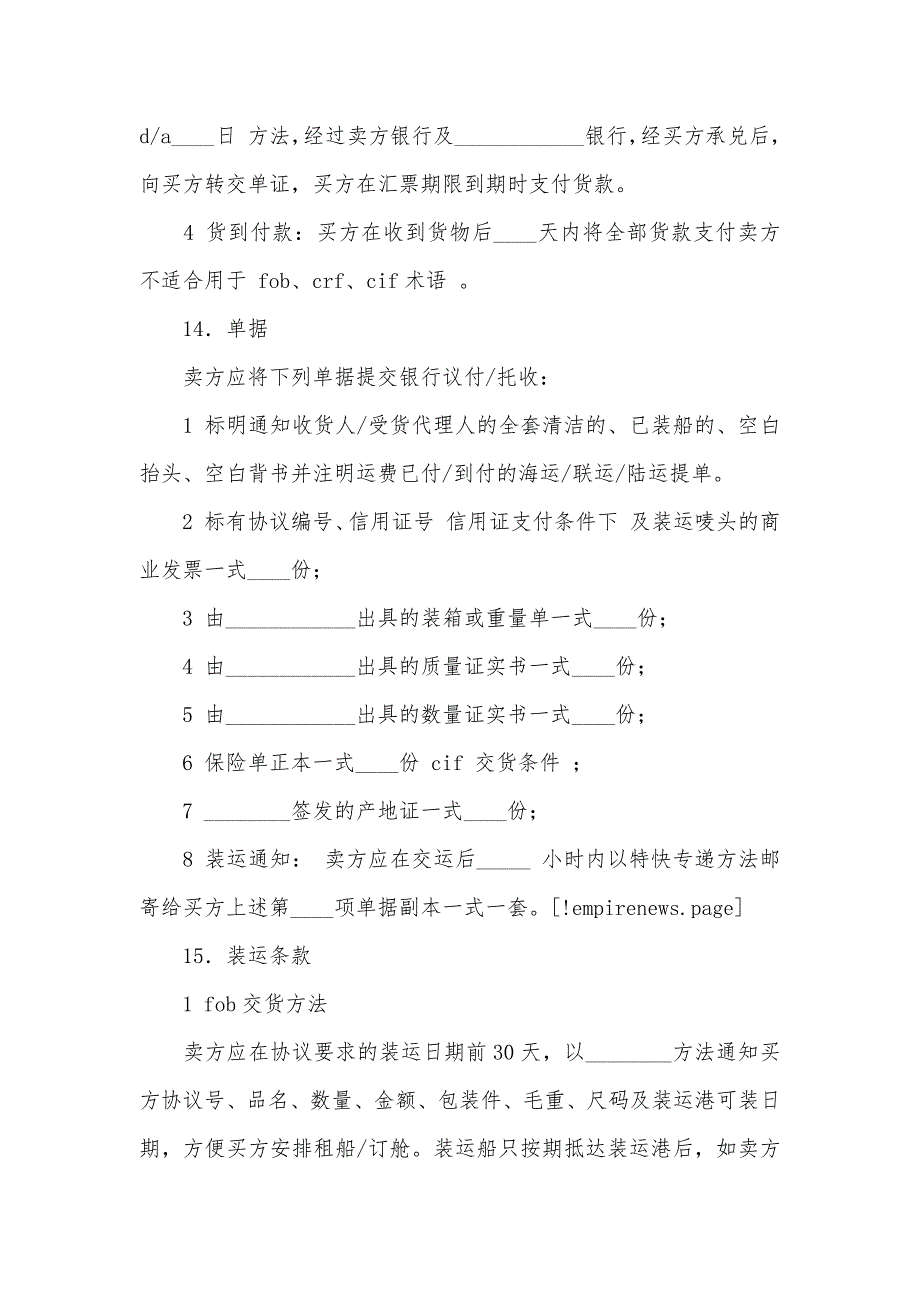 d/a____日 方法,经过卖方银行及____________银行,经买方承兑后,
向买方转交单证，买方在汇票期限到期时支付货款。
4 货到付款：买方在收到货物后____天内将全部货款支付卖方
不适合用于 fob、crf、cif术语 。
14．单据
卖方应将下列单据提交银行议付/托收：
1 标明通知收货人/受货代理人的全套清洁的、已装船的、空白
抬头、空白背书并注明运费已付/到付的海运/联运/陆运提单。
2 标有协议编号、信用证号 信用证支付条件下 及装运唛头的商
业发票一式____份；
3 由____________出具的装箱或重量单一式____份；
4 由____________出具的质量证实书一式____份；
5 由____________出具的数量证实书一式____份；
6 保险单正本一式____份 cif 交货条件 ；
7 ________签发的产地证一式____份；
8 装运通知： 卖方应在交运后_____ 小时内以特快专递方法邮
寄给买方上述第____项单据副本一式一套。[!empirenews.page]
15．装运条款
1 fob交货方法
卖方应在协议要求的装运日期前30天，以________方法通知买
方协议号、品名、数量、金额、包装件、毛重、尺码及装运港可装日
期，方便买方安排租船/订舱。装运船只按期抵达装运港后，如卖方